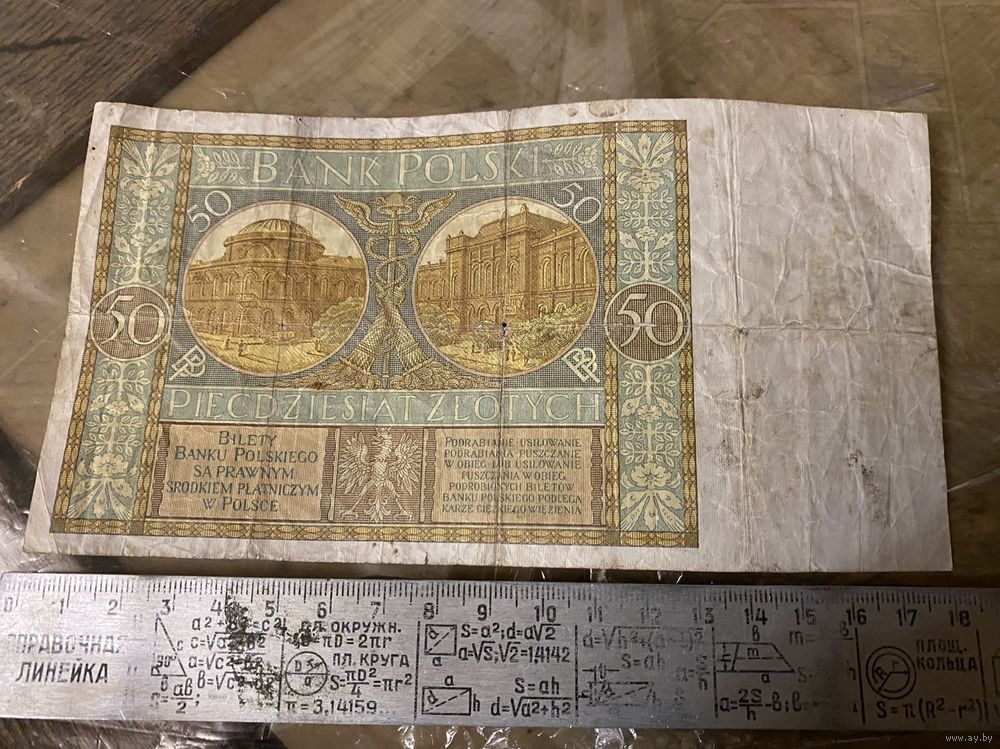 BANK POLSKI
50 50
50 50
PIĘĆDZIESIĄT ZŁOTYCH
BILETY
BANKU POLSKIEGO
SĄ PRAWNYM
ŚRODKIEM PŁATNICZYM
W POLSCE
PODRABIANIE·USIŁOWANIE
PODRABIANIA·PUSZCZANIE
W OBIEG·LUB USIŁOWANIE
PUSZCZANIA W OBIEG
PODROBIONYCH BILETÓW
BANKU POLSKIEGO PODLEGA
KARZE CIĘŻKIEGO WIĘZIENIA
0 1 2 3 4 5 6 7 8 9 10 11 12 13 14 15 16 17 18
СПРАВОЧНАЯ
ЛИНЕЙКА
30°
дл. ОКРУЖН.
=πD=2πr
ПЛ. КРУГА
S=πD²/4=πr²
π=3,14159
S=a²; d=a√2
a=√S; √2=1,4142
S=ah
d=√a²+h²
a
h
S=
a=2S/h-в; в=
m=
ПЛОЩ.
КОЛЬЦА
S=π(R²-r²)
www.ay.by